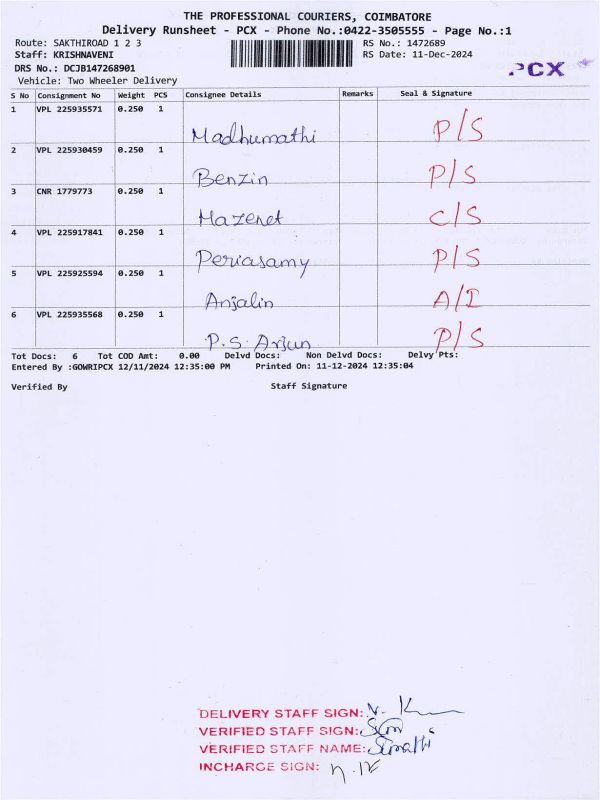 THE PROFESSIONAL COURIERS, COIMBATORE
Delivery Runsheet - PCX - Phone No.:0422-3505555 - Page No.:1
Route: SAKTHIROAD 1 2 3 RS No.: 1472689
Staff: KRISHNAVENI RS Date: 11-Dec-2024
DRS No.: DCJB147268901
PCX
Vehicle: Two Wheeler Delivery
S No Consignment No Weight PCS Consignee Details Remarks Seal & Signature
1 VPL 225935571 0.250 1 Madhumathi P/S
2 VPL 225930459 0.250 1 Benzin P/S
3 CNR 1779773 0.250 1 Mazenet C/S
4 VPL 225917841 0.250 1 Periasamy P/S
5 VPL 225925594 0.250 1 Anjalin A/I
6 VPL 225935568 0.250 1 P.S. Arjun P/S
Tot Docs: 6 Tot COD Amt: 0.00 Delvd Docs: Non Delvd Docs: Delvy Pts:
Entered By :GOWRIPCX 12/11/2024 12:35:00 PM Printed On: 11-12-2024 12:35:04
Verified By Staff Signature
DELIVERY STAFF SIGN:
VERIFIED STAFF SIGN:
VERIFIED STAFF NAME: Sumathi
INCHARGE SIGN: